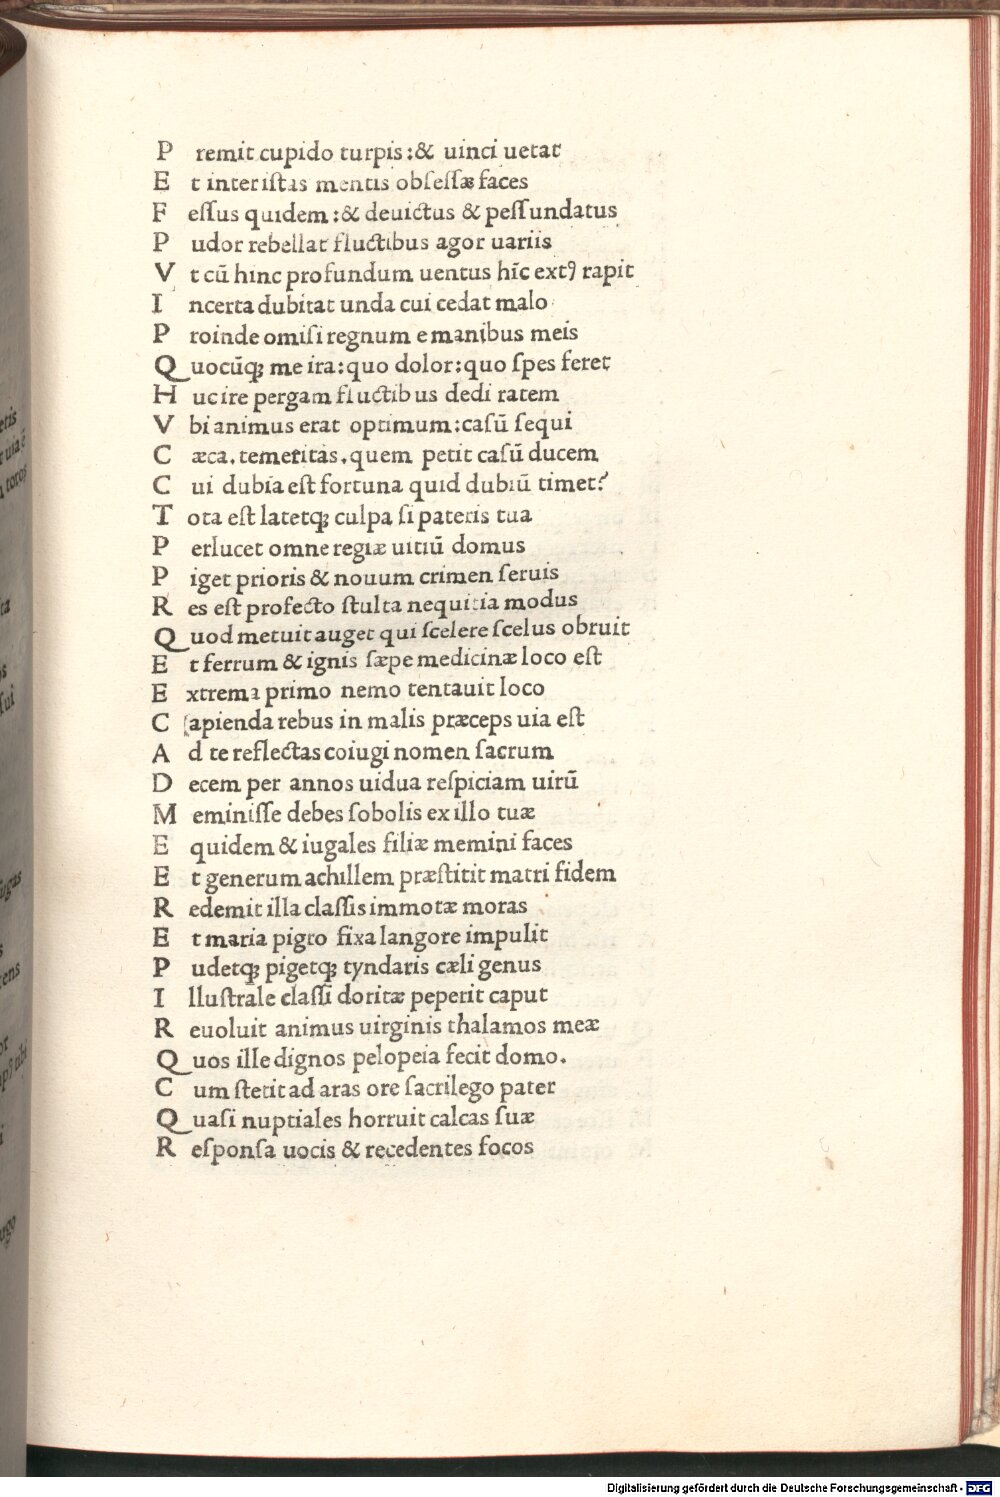 P remit cupido turpis:& uinci uetat
E t inter istas mentis obsessæ faces
F essus quidem:& deuictus & pessundatus
P udor rebellat fluctibus agor uariis
V t cū hinc profundum uentus hīc extꝰ rapit
I ncerta dubitat unda cui cedat malo
P roinde omisi regnum e manibus meis
Q uocūqꝫ me ira:quo dolor:quo spes feret
H uc ire pergam fluctibus dedi ratem
V bi animus erat optimum:casū sequi
C æca.temeritas.quem petit casū ducem
C ui dubia est fortuna quid dubiū timet?
T ota est latetqꝫ culpa si pateris tua
P erlucet omne regiæ uitiū domus
P iget prioris & nouum crimen seruis
R es est profecto stulta nequitia modus
Q uod metuit auget qui scelere scelus obruit
E t ferrum & ignis sæpe medicinæ loco est
E xtrema primo nemo tentauit loco
C apienda rebus in malis præceps uia est
A d te reflectas coiugi nomen sacrum
D ecem per annos uidua respiciam uirū
M eminisse debes sobolis ex illo tuæ
E quidem & iugales filiæ memini faces
E t generum achillem præstitit matri fidem
R edemit illa classis immotæ moras
E t maria pigro fixa langore impulit
P udetqꝫ pigetqꝫ tyndaris cæli genus
I llustrale classi doritæ peperit caput
R euoluit animus uirginis thalamos meæ
Q uos ille dignos pelopeia fecit domo.
C um stetit ad aras ore sacrilego pater
Q uasi nuptiales horruit calcas suæ
R esponsa uocis & recedentes focos
Digitalisierung gefördert durch die Deutsche Forschungsgemeinschaft - DFG